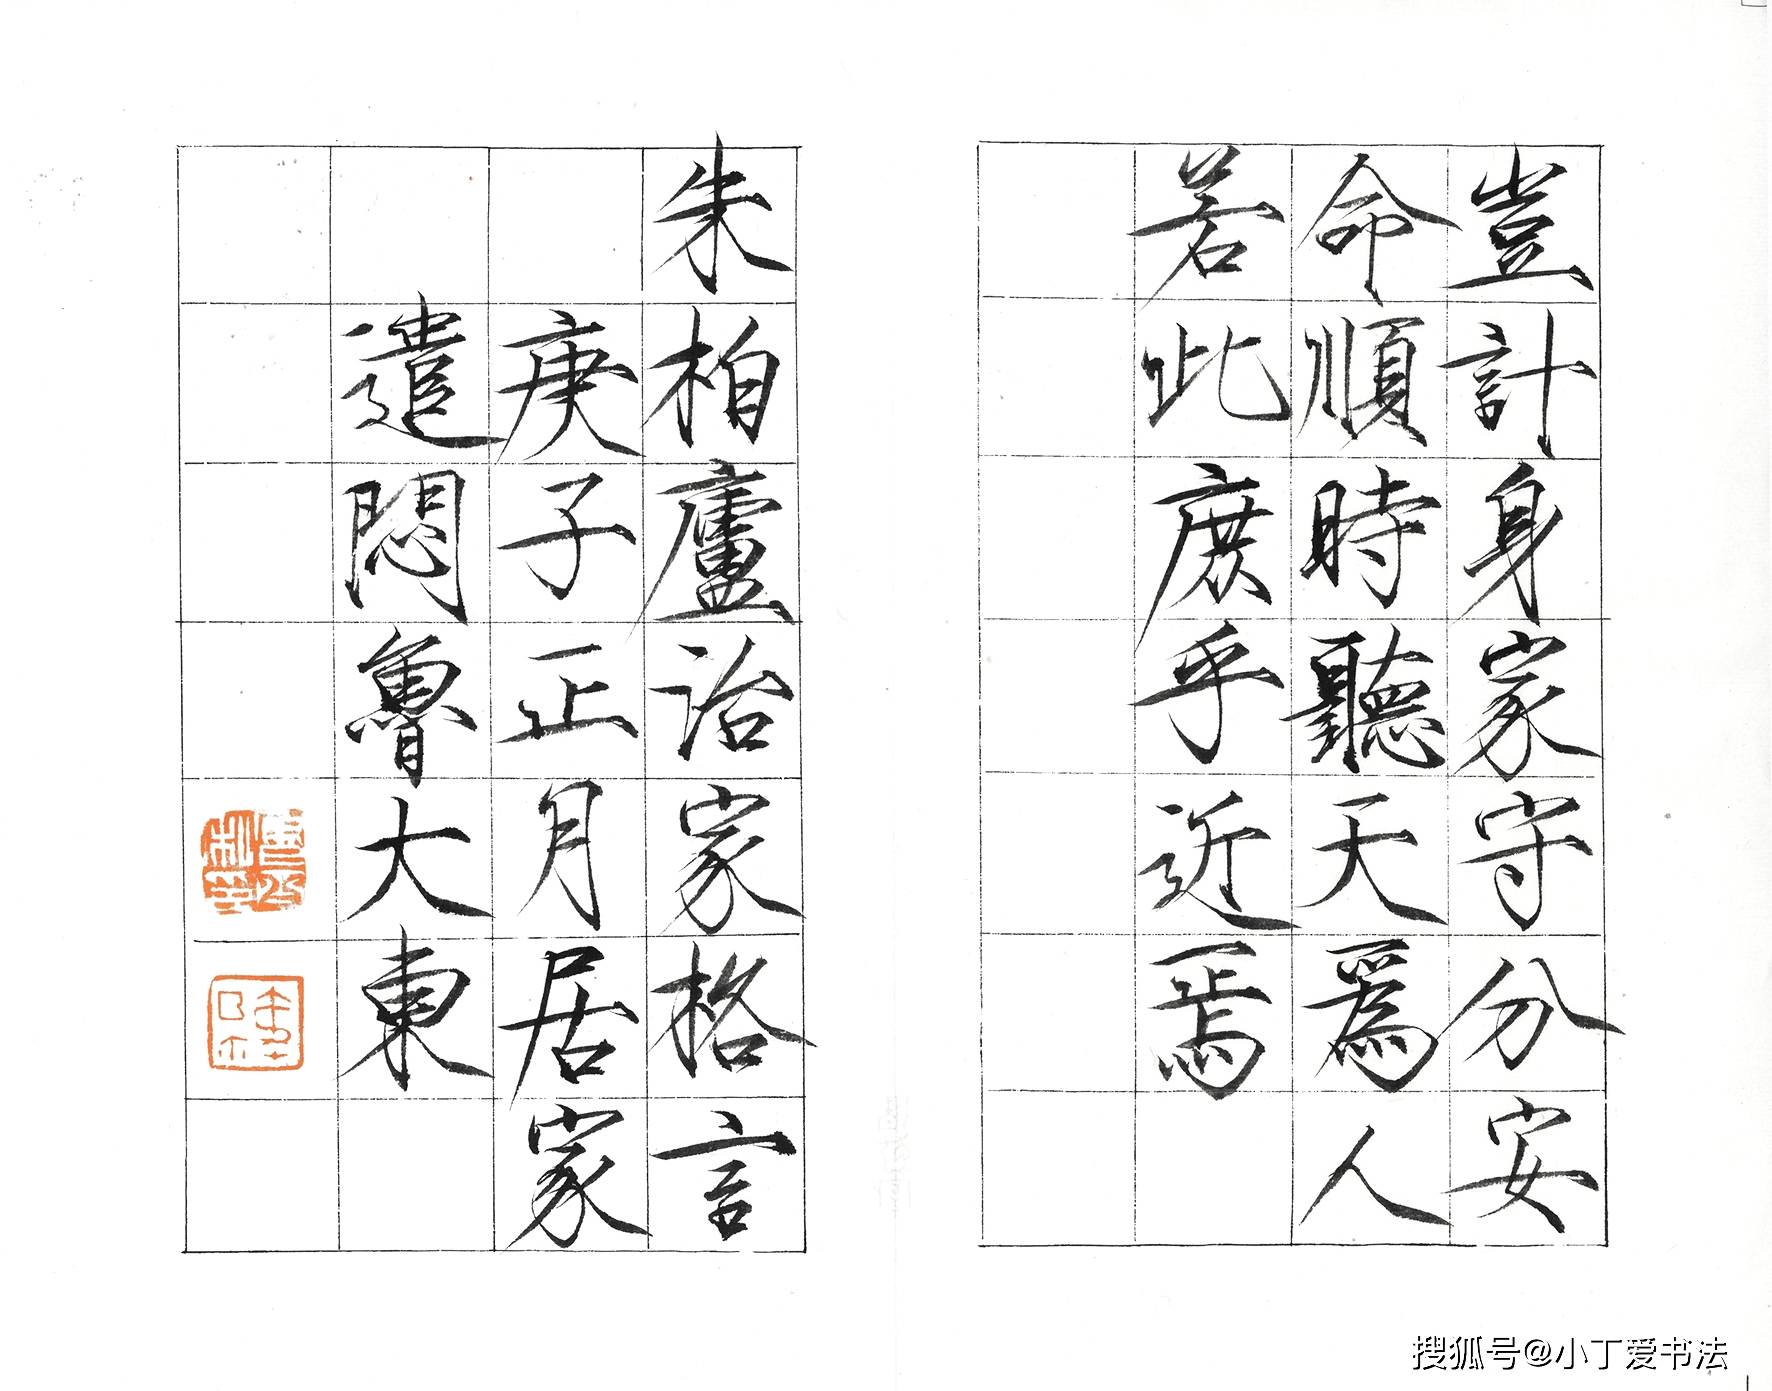 豈計身家守分安
命順時聽天爲人
若此庶乎近焉
朱柏廬治家格言
庚子正月居家
遣悶魯大東
搜狐号@小丁爱书法